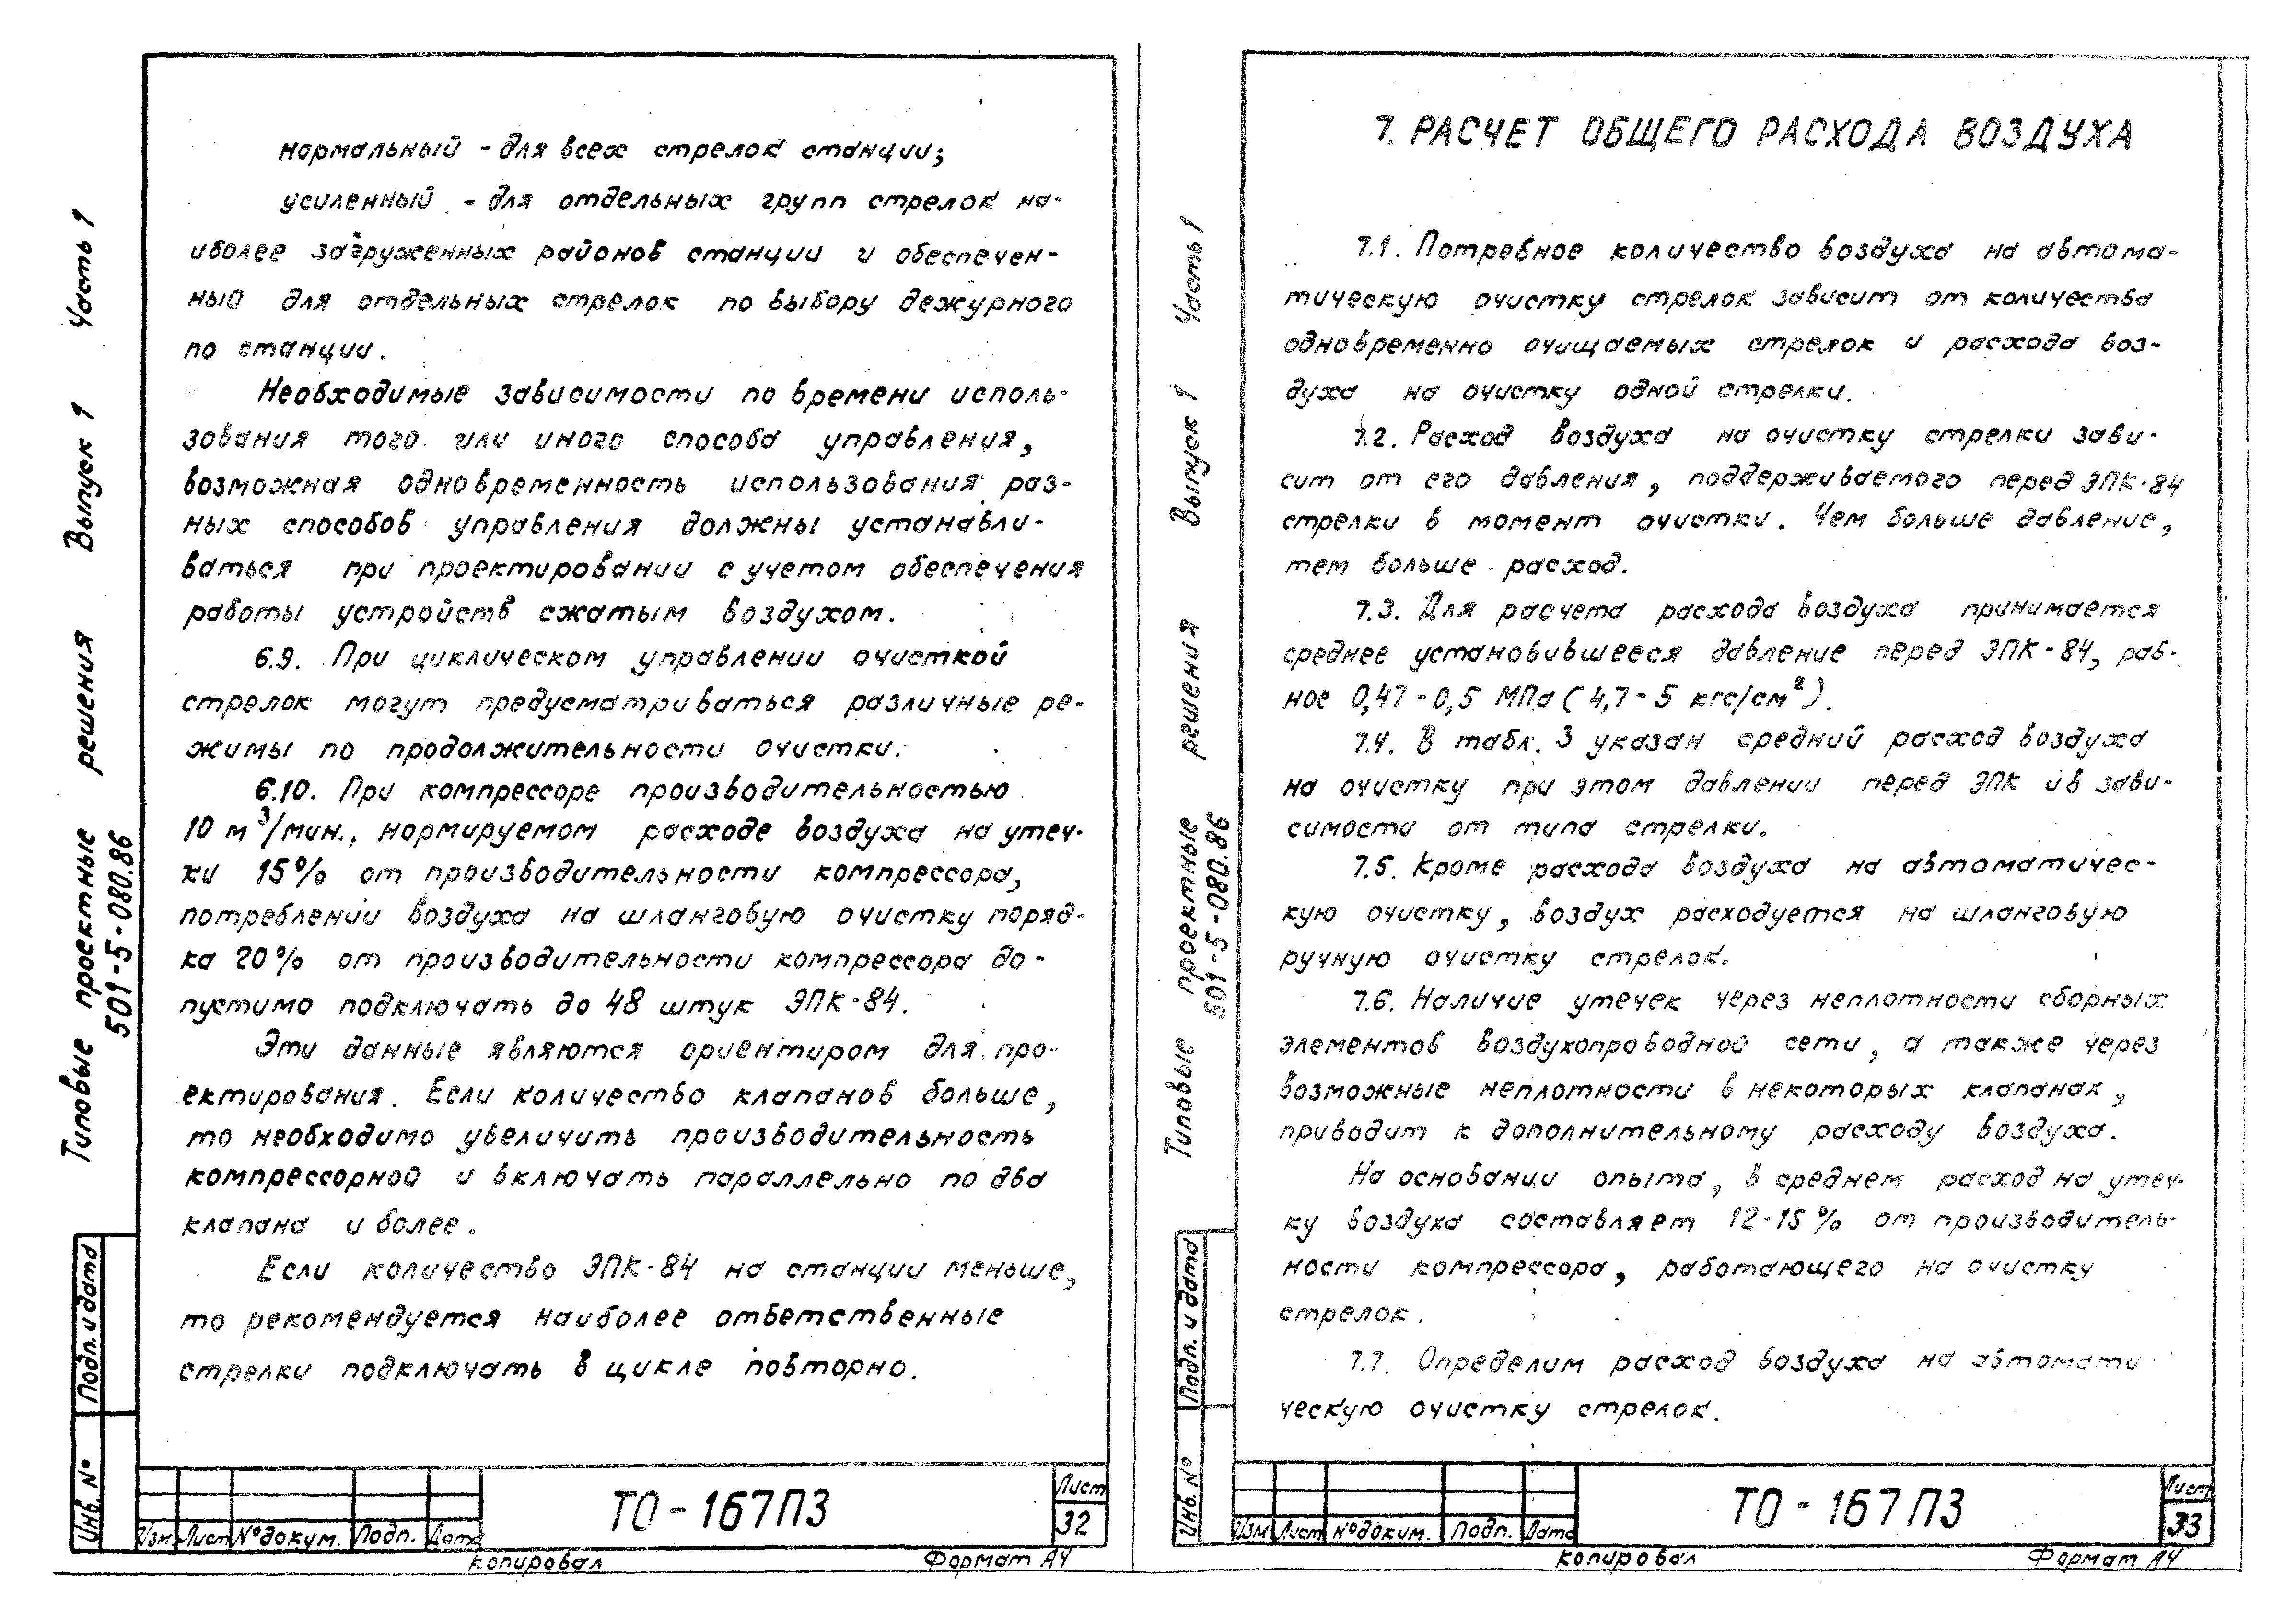 нормальный - для всех стрелок станции;
усиленный - для отдельных групп стрелок на-
иболее загруженных районов станции и обеспечен-
ный для отдельных стрелок по выбору дежурного
по станции.
Необходимые зависимости по времени исполь-
зования того или иного способа управления,
возможная одновременность использования раз-
ных способов управления должны устанавли-
ваться при проектировании с учетом обеспечения
работы устройств сжатым воздухом.
6.9. При циклическом управлении очисткой
стрелок могут предусматриваться различные ре-
жимы по продолжительности очистки.
6.10. При компрессоре производительностью
10 м³/мин., нормируемом расходе воздуха на утеч-
ки 15% от производительности компрессора,
потреблении воздуха на шланговую очистку поряд-
ка 20% от производительности компрессора до-
пустимо подключать до 48 штук ЭПК-84.
Эти данные являются ориентиром для про-
ектирования. Если количество клапанов больше,
то необходимо увеличить производительность
компрессорной и включать параллельно по два
клапана и более.
Если количество ЭПК-84 на станции меньше,
то рекомендуется наиболее ответственные
стрелки подключать в цикле повторно.
Типовые проектные решения Выпуск 1 Часть 1
501-5-080.86
Подп. и дата
Инв. №
Изм Лист № докум. Подп. Дата
ТО-167ПЗ
Лист
32
Копировал Формат А4
7. РАСЧЕТ ОБЩЕГО РАСХОДА ВОЗДУХА
7.1. Потребное количество воздуха на автома-
тическую очистку стрелок зависит от количества
одновременно очищаемых стрелок и расхода воз-
духа на очистку одной стрелки.
7.2. Расход воздуха на очистку стрелки зави-
сит от его давления, поддерживаемого перед ЭПК-84
стрелки в момент очистки. Чем больше давление,
тем больше расход.
7.3. Для расчета расхода воздуха принимается
среднее установившееся давление перед ЭПК-84, рав-
ное 0,47-0,5 МПа (4,7-5 кгс/см²).
7.4. В табл. 3 указан средний расход воздуха
на очистку при этом давлении перед ЭПК и в зави-
симости от типа стрелки.
7.5. Кроме расхода воздуха на автоматичес-
кую очистку, воздух расходуется на шланговую
ручную очистку стрелок.
7.6. Наличие утечек через неплотности сборных
элементов воздухопроводной сети, а также через
возможные неплотности в некоторых клапанах,
приводит к дополнительному расходу воздуха.
На основании опыта, в среднем расход на утеч-
ку воздуха составляет 12-15% от производитель-
ности компрессора, работающего на очистку
стрелок.
7.7. Определим расход воздуха на автомати-
ческую очистку стрелок.
Типовые проектные решения Выпуск 1 Часть 1
501-5-080.86
Подп. и дата
Инв. №
Изм Лист № докум. Подп. Дата
ТО-167ПЗ
Лист
33
Копировал Формат А4